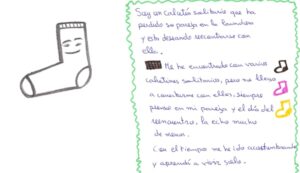 Soy un calcetín solitario que ha
perdido su pareja en la lavandería
y esto deseando reencontrarse con
ella.
Me he encontrado con varios
calcetines solitarios, pero no llego
a convivirme con ellos, siempre
pienso en mi pareja y el día del
reencuentro, la echo mucho
de menos.
Con el tiempo me he ido acostumbrando
y aprendí a vivir solo.